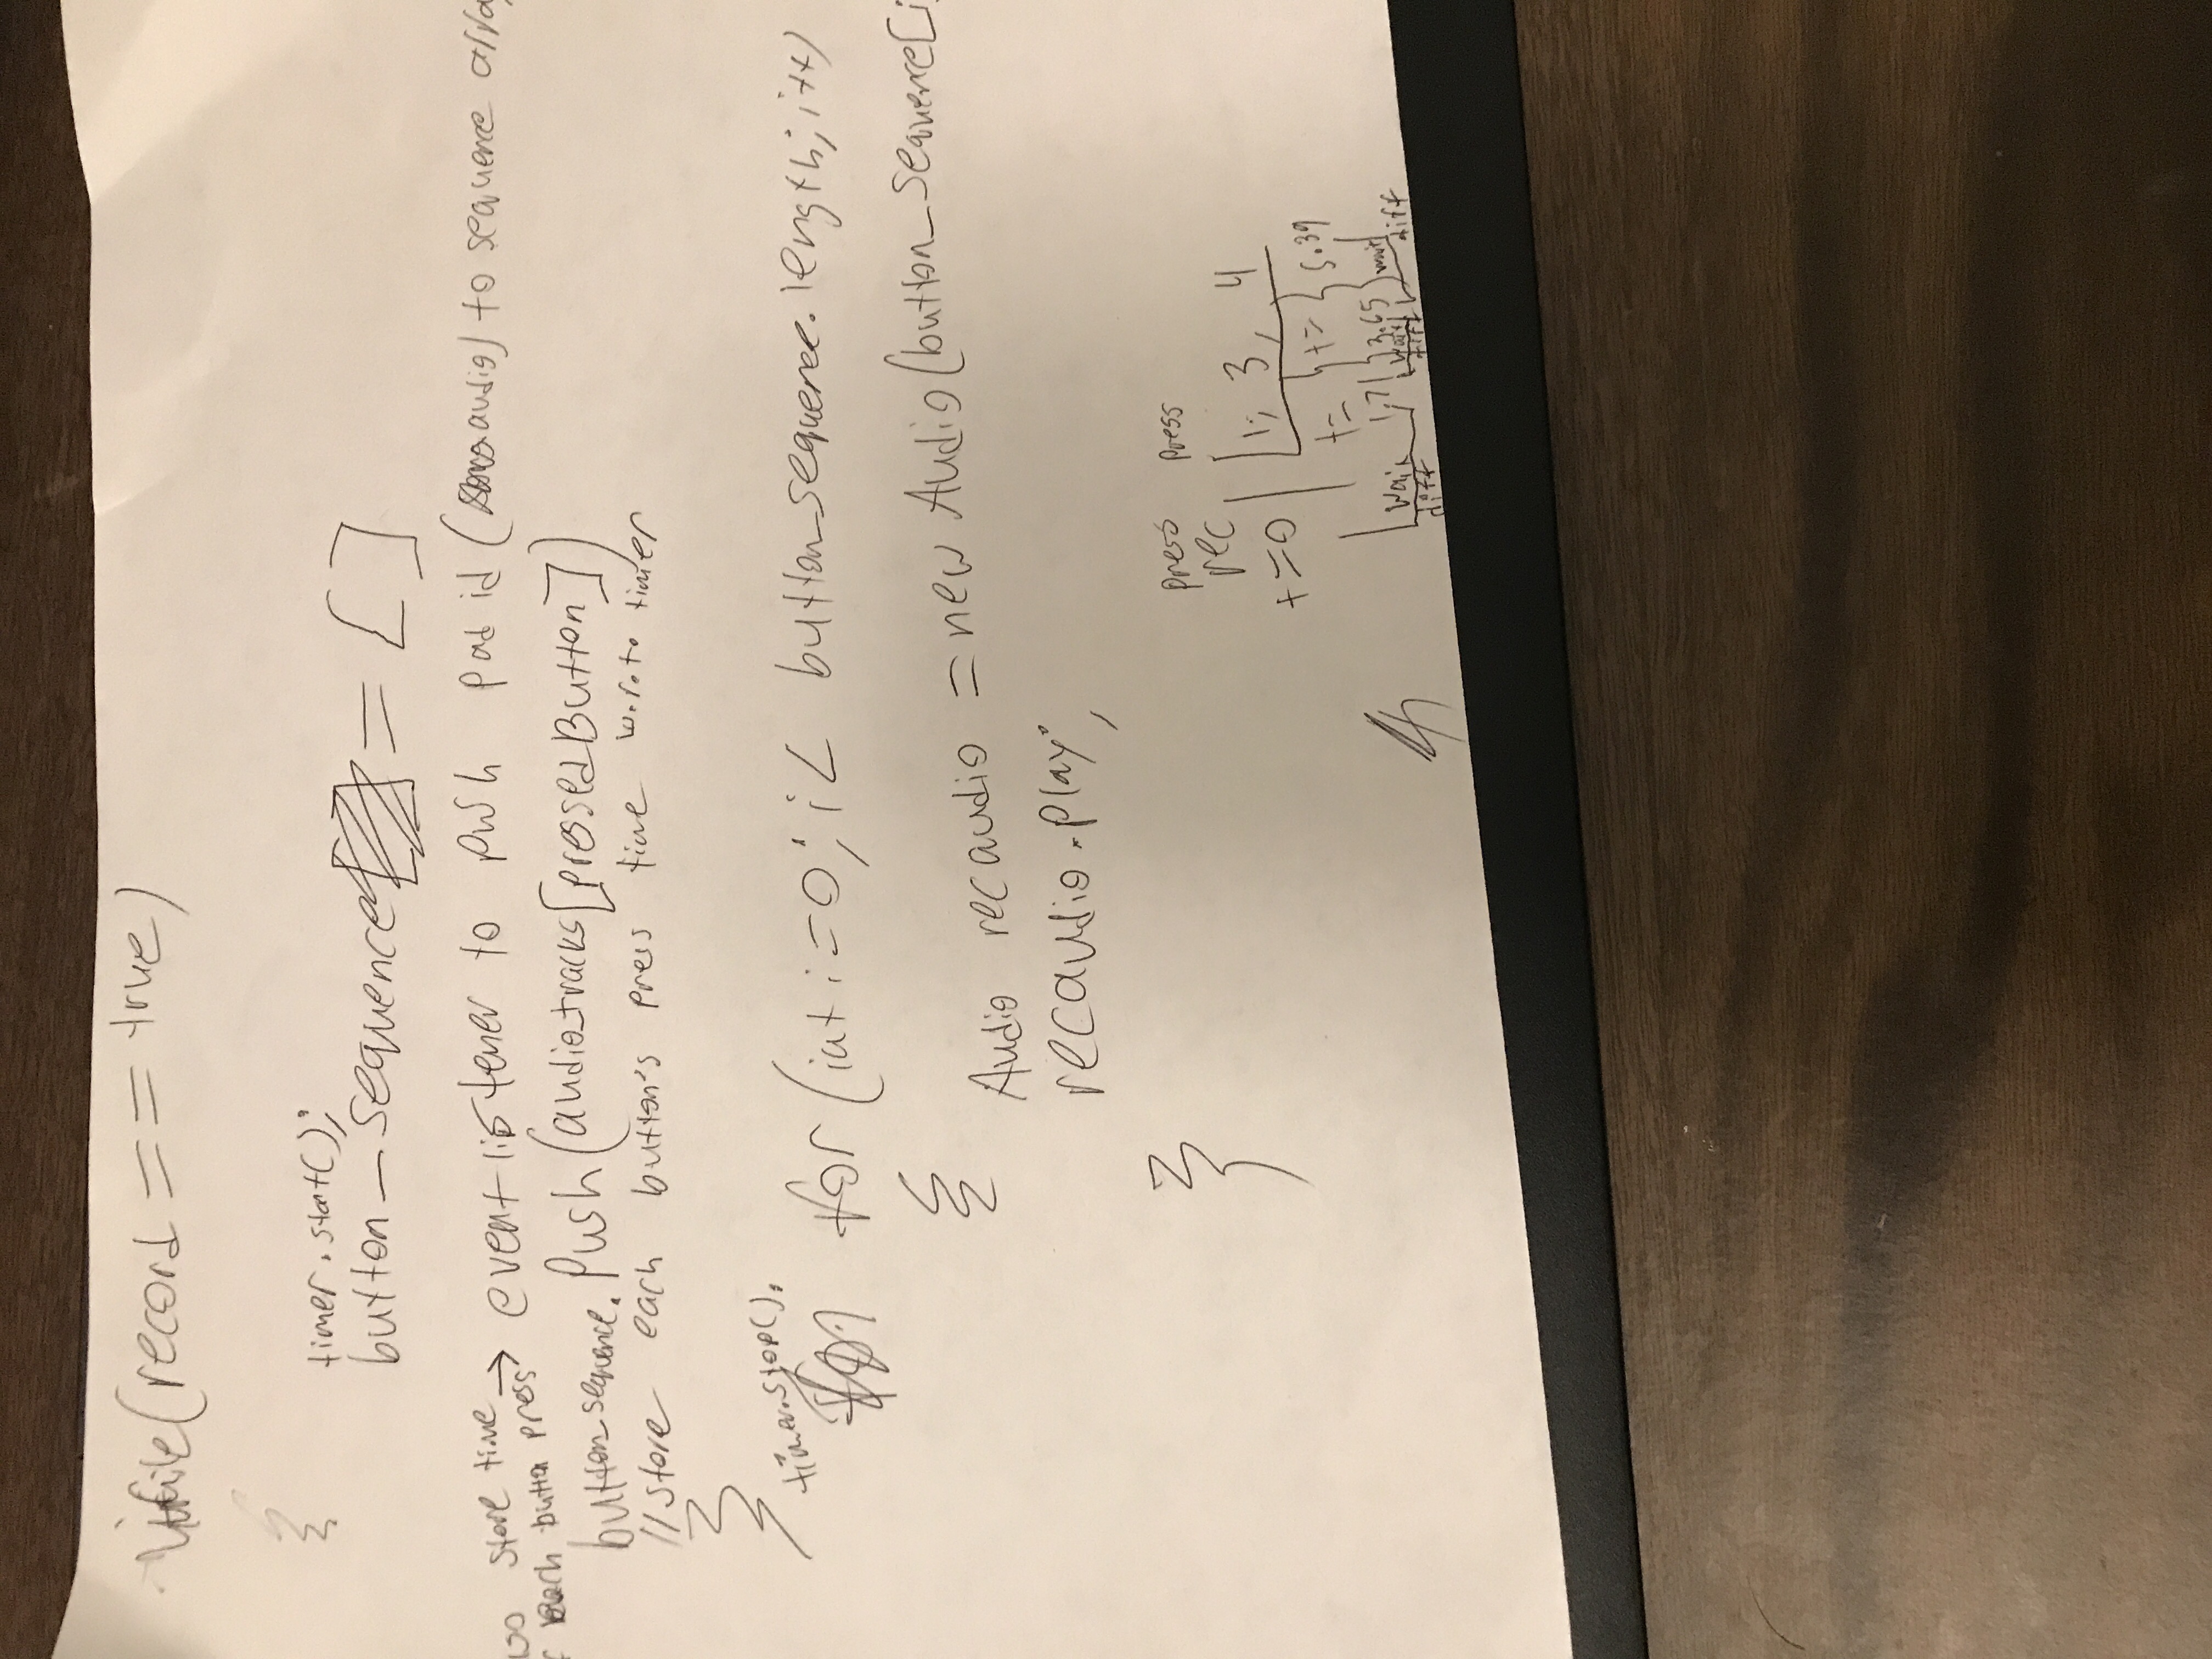 (record == true)
{
timer.start();
button_sequence = []
store time → event listener to push pad id (audio) to sequence
each button press
button_sequence.push(audio_tracks[pressedButton])
//store each button's press time w.r.t. timer
}
timer.stop();
for (int i=0; i< button_sequence.length; i++)
{
Audio recaudio = new Audio(button_sequence[i
recaudio.play;
}
press press
rec
t=0 1, 3, 4
t= t= 5.39
1.71 3.65
wait wait wait
diff diff diff